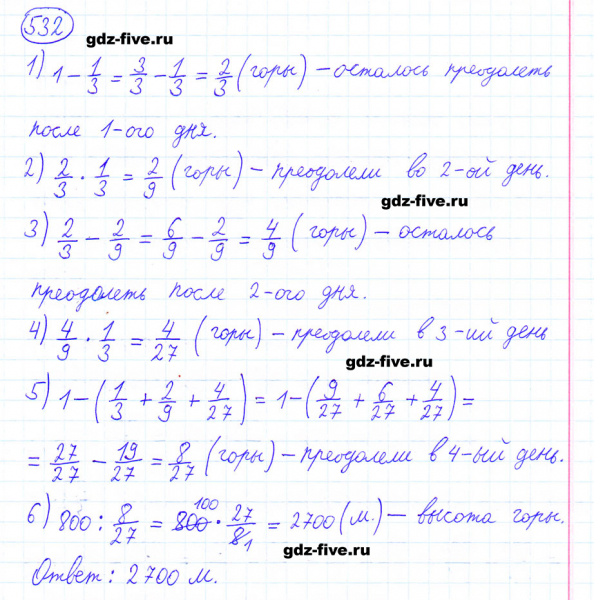 532
gdz-five.ru
1) 1 - 1/3 = 3/3 - 1/3 = 2/3 (горы) - осталось преодолеть
после 1-ого дня.
2) 2/3 · 1/3 = 2/9 (горы) - преодолели во 2-ой день.
gdz-five.ru
3) 2/3 - 2/9 = 6/9 - 2/9 = 4/9 (горы) - осталось
преодолеть после 2-ого дня.
4) 4/9 · 1/3 = 4/27 (горы) - преодолели в 3-ий день
gdz-five.ru
5) 1 - (1/3 + 2/9 + 4/27) = 1 - (9/27 + 6/27 + 4/27) =
= 27/27 - 19/27 = 8/27 (горы) - преодолели в 4-ый день.
6) 800 : 8/27 = 800 100 · 27/8 1 = 2700 (м.) - высота горы.
gdz-five.ru
Ответ: 2700 м.